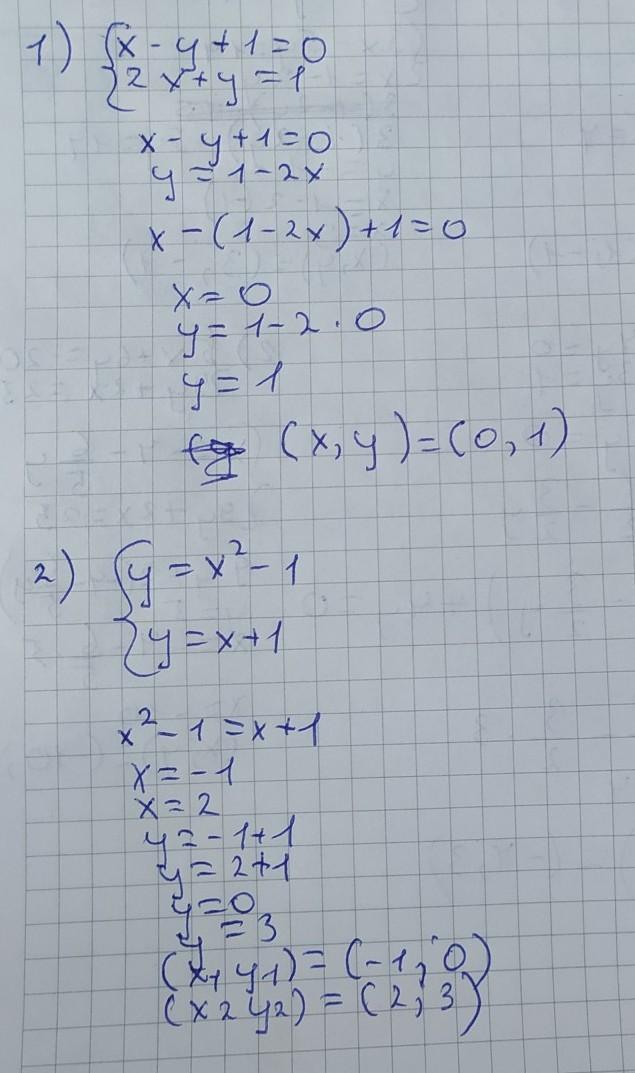 1) {x - y + 1 = 0
{2x + y = 1
x - y + 1 = 0
y = 1 - 2x
x - (1 - 2x) + 1 = 0
x = 0
y = 1 - 2 · 0
y = 1
(x, y) = (0, 1)
2) {y = x² - 1
{y = x + 1
x² - 1 = x + 1
x = -1
x = 2
y = -1 + 1
y = 2 + 1
y = 0
y = 3
(x1 y1) = (-1; 0)
(x2 y2) = (2; 3)